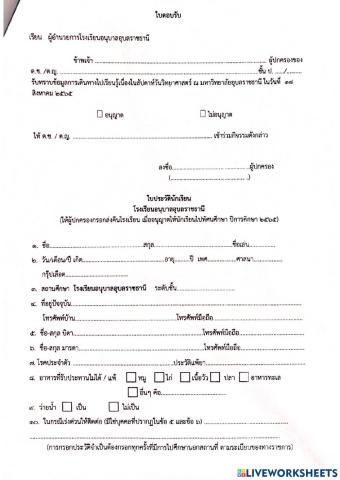 ใบตอบรับ
เรียน ผู้อำนวยการโรงเรียนอนุบาลอุบลราชธานี
ข้าพเจ้า ........ ผู้ปกครองของ
ด.ช. /ด.ญ. ........ ชั้น ป. ....../......
รับทราบข้อมูลการเดินทางไปเรียนรู้เนื่องในสัปดาห์วันวิทยาศาสตร์ ณ มหาวิทยาลัยอุบลราชธานี ในวันที่ ๑๗
สิงหาคม ๒๕๖๕
อนุญาต ไม่อนุญาต
ให้ ด.ช. / ด.ญ. ........ เข้าร่วมกิจกรรมดังกล่าว
ลงชื่อ........ผู้ปกครอง
(........)
ใบประวัตินักเรียน
โรงเรียนอนุบาลอุบลราชธานี
(ให้ผู้ปกครองกรอกส่งคืนโรงเรียน เมื่ออนุญาตให้นักเรียนไปทัศนศึกษา ปีการศึกษา ๒๕๖๕)
๑. ชื่อ........สกุล........ชื่อเล่น........
๒. วัน/เดือน/ปี เกิด........อายุ........ปี เพศ........ศาสนา........
กรุ๊ปเลือด........
๓. สถานศึกษา โรงเรียนอนุบาลอุบลราชธานี ระดับชั้น........
๔. ที่อยู่ปัจจุบัน........
โทรศัพท์บ้าน........โทรศัพท์มือถือ........
๕. ชื่อ-สกุล บิดา........โทรศัพท์มือถือ........
๖. ชื่อ-สกุล มารดา........โทรศัพท์มือถือ........
๗. โรคประจำตัว ........ประวัติแพ้ยา........
๘. อาหารที่รับประทานไม่ได้ / แพ้ หมู ไก่ เนื้อวัว ปลา อาหารทะเล
อื่นๆ คือ........
๙. ว่ายน้ำ เป็น ไม่เป็น
๑๐. ในกรณีเร่งด่วนให้ติดต่อ (มิใช่บุคคลที่ปรากฏในข้อ ๕ และข้อ ๖) ........
(การกรอกประวัติจำเป็นต้องกรอกทุกครั้งที่มีการไปศึกษานอกสถานที่ ตามระเบียบของทางราชการ)
LIVEWORKSHEETS